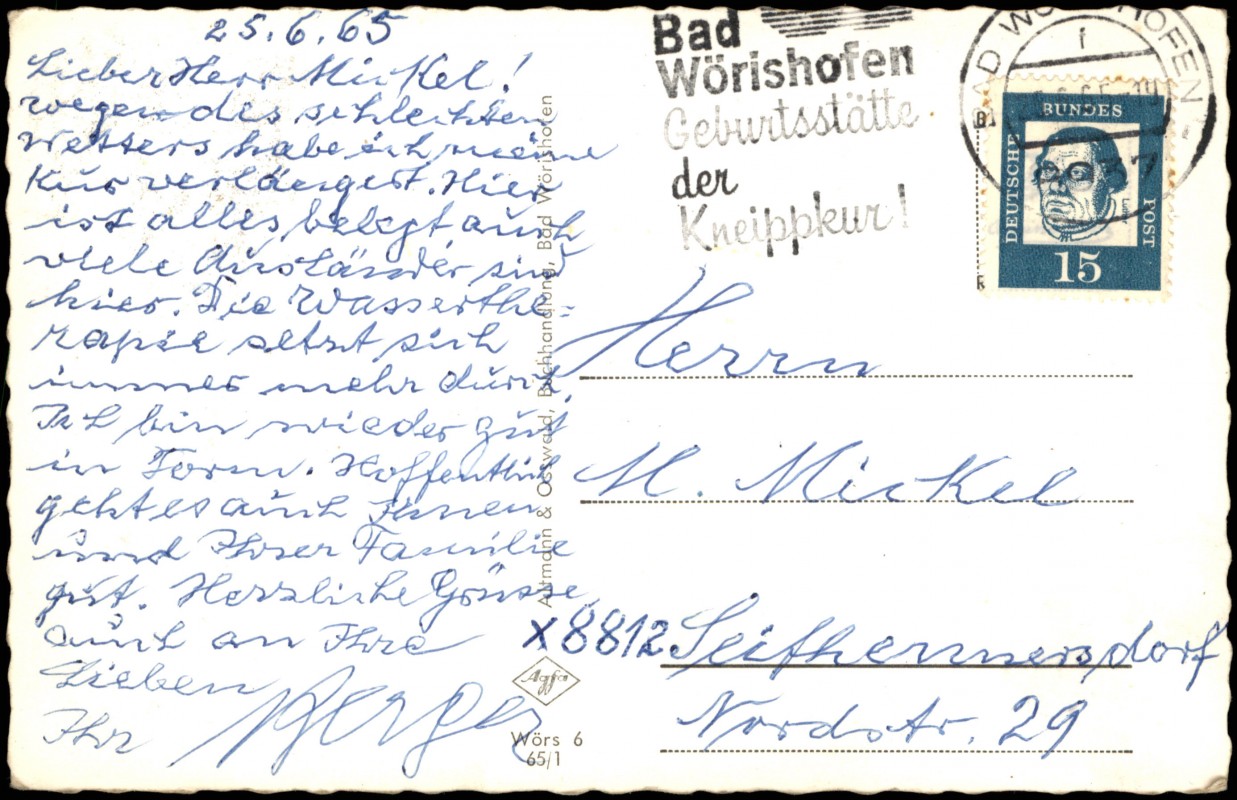 25.6.65
Lieber Herr Mickel!
wegen des schlechten
Wetters habe ich meine
Kur verlängert. Hier
ist alles belegt auch
viele Ausländer sind
hier. Die Wasserthe=
rapie setzt sich
immer mehr durch.
Ich bin wieder gut
in Form. Hoffentlich
geht es auch Ihnen
und Ihrer Familie
gut. Herzliche Grüsse
auch an Ihre
Lieben
Ihr Berger
Altmann & Osswald, Buchhandlung, Bad Wörishofen
Agfa
Wörs 6
65/1
Bad
Wörishofen
Geburtsstätte
der
Kneippkur!
BAD WÖRISHOFEN
DEUTSCHE
BUNDES
POST
Luther
15
Herrn
M. Mickel
X8812 Seifhennersdorf
Nordstr. 29